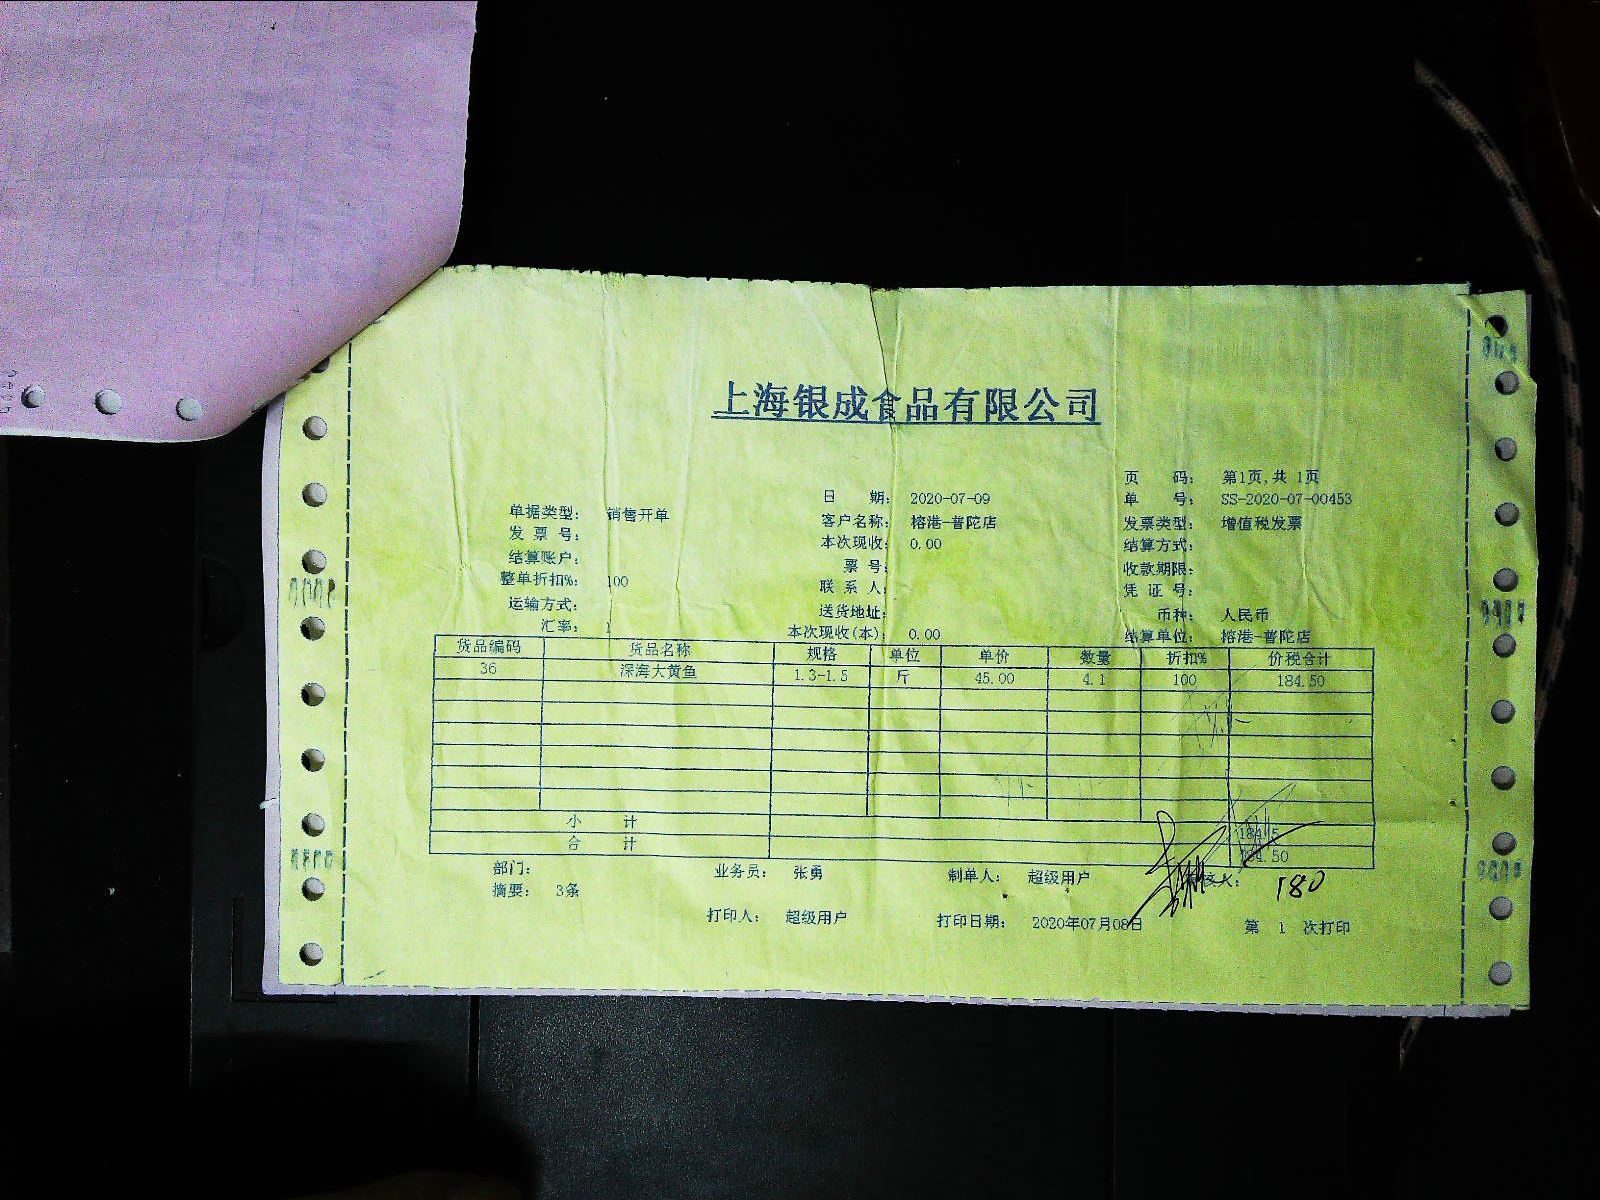 上海银成食品有限公司
页 码: 第1页,共 1页
日 期: 2020-07-09 单 号: SS-2020-07-00453
单据类型: 销售开单 客户名称: 榕港-普陀店 发票类型: 增值税发票
发 票 号: 本次现收: 0.00 结算方式:
结算账户: 票 号: 收款期限:
整单折扣%: 100 联 系 人: 凭 证 号:
运输方式: 送货地址: 币种: 人民币
汇率: 1 本次现收(本): 0.00 结算单位: 榕港-普陀店
货品编码 货品名称 规格 单位 单价 数量 折扣% 价税合计
36 深海大黄鱼 1.3-1.5 斤 45.00 4.1 100 184.50
小 计 184.5
合 计 184.50
部门: 业务员: 张勇 制单人: 超级用户 180
摘要: 3条
打印人: 超级用户 打印日期: 2020年07月08日 第 1 次打印